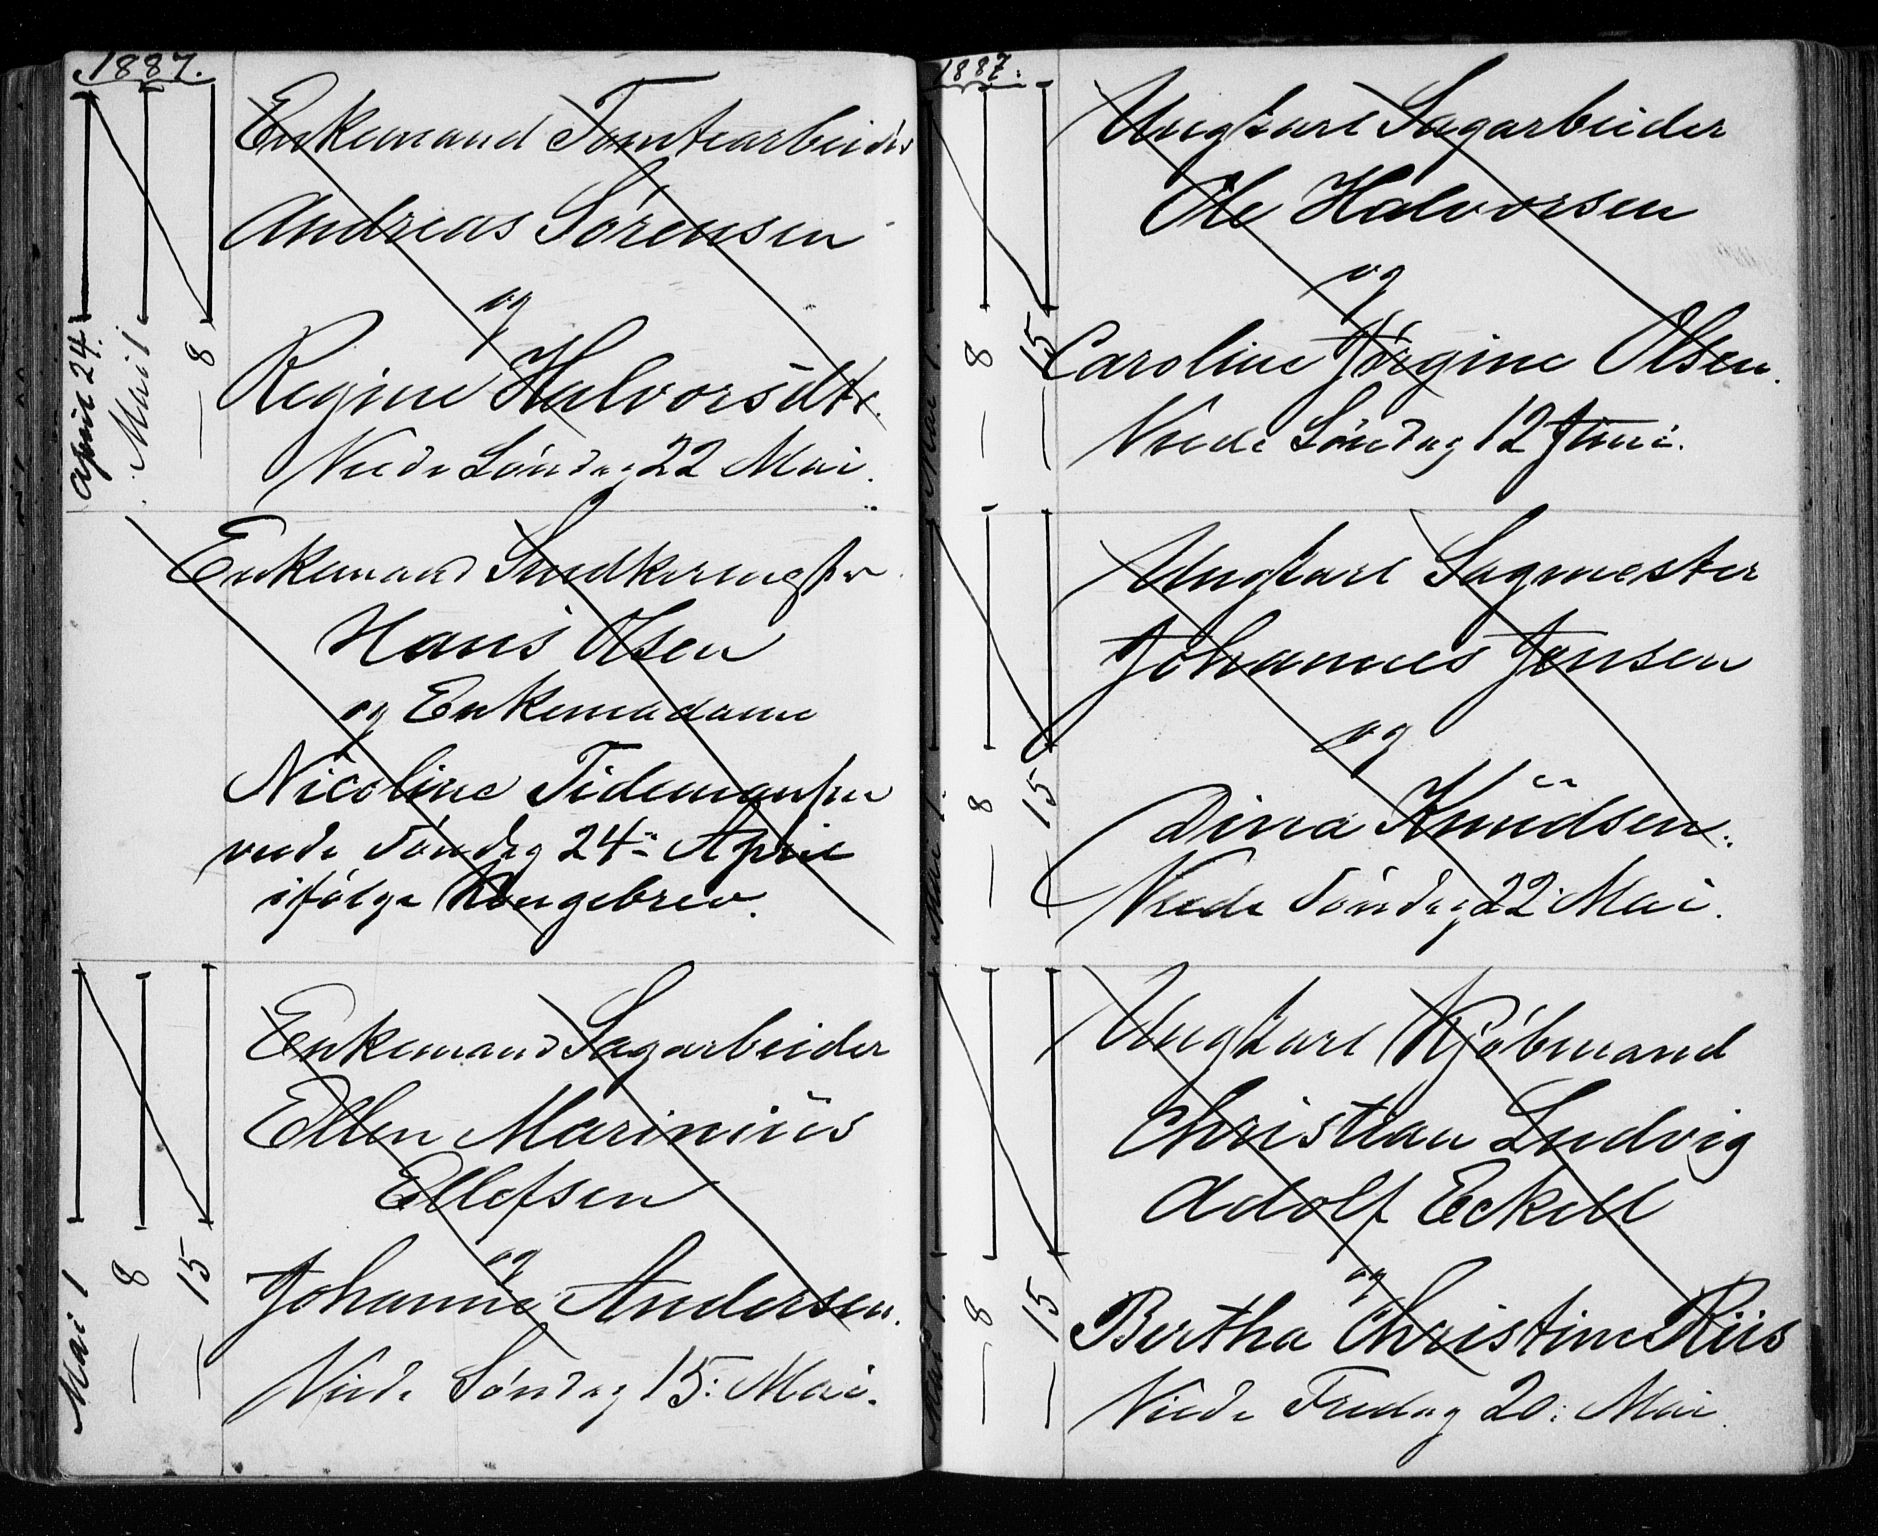 1887.
April 24.
Mai 1
— 8
Enkemand Tomtearbeider
Andreas Sörensen
og
Regine Halvorsdtr.
Viede Söndag 22 Mai.
Enkemand
Hans Olsen
og Enkemadame
Nicoline Tidemansen
viede Söndag 24: April
ifölge Kongebrev.
Mai 1
— 8
— 15
Enkemand Sagarbeider
Ellen Marinius
Ellefsen
og
Johanne Andersen.
Viede Söndag 15: Mai.
1887.
Mai 1.
— 8
— 15
Ungkarl Sagarbeider
Ole Halvorsen
og
Caroline Jörgine Olsen.
Viede Söndag 12 Juni.
Mai 1.
— 8
— 15
Ungkarl Sagmester
Johannes Jonsen
og
Dina Knudsen.
Viede Söndag 22 Mai.
Mai 1.
— 8
— 15
Ungkarl Kjöbmand
Christian Ludvig
Adolf Eckell
og
Bertha Christine Riis
Viede Fredag 20: Mai.